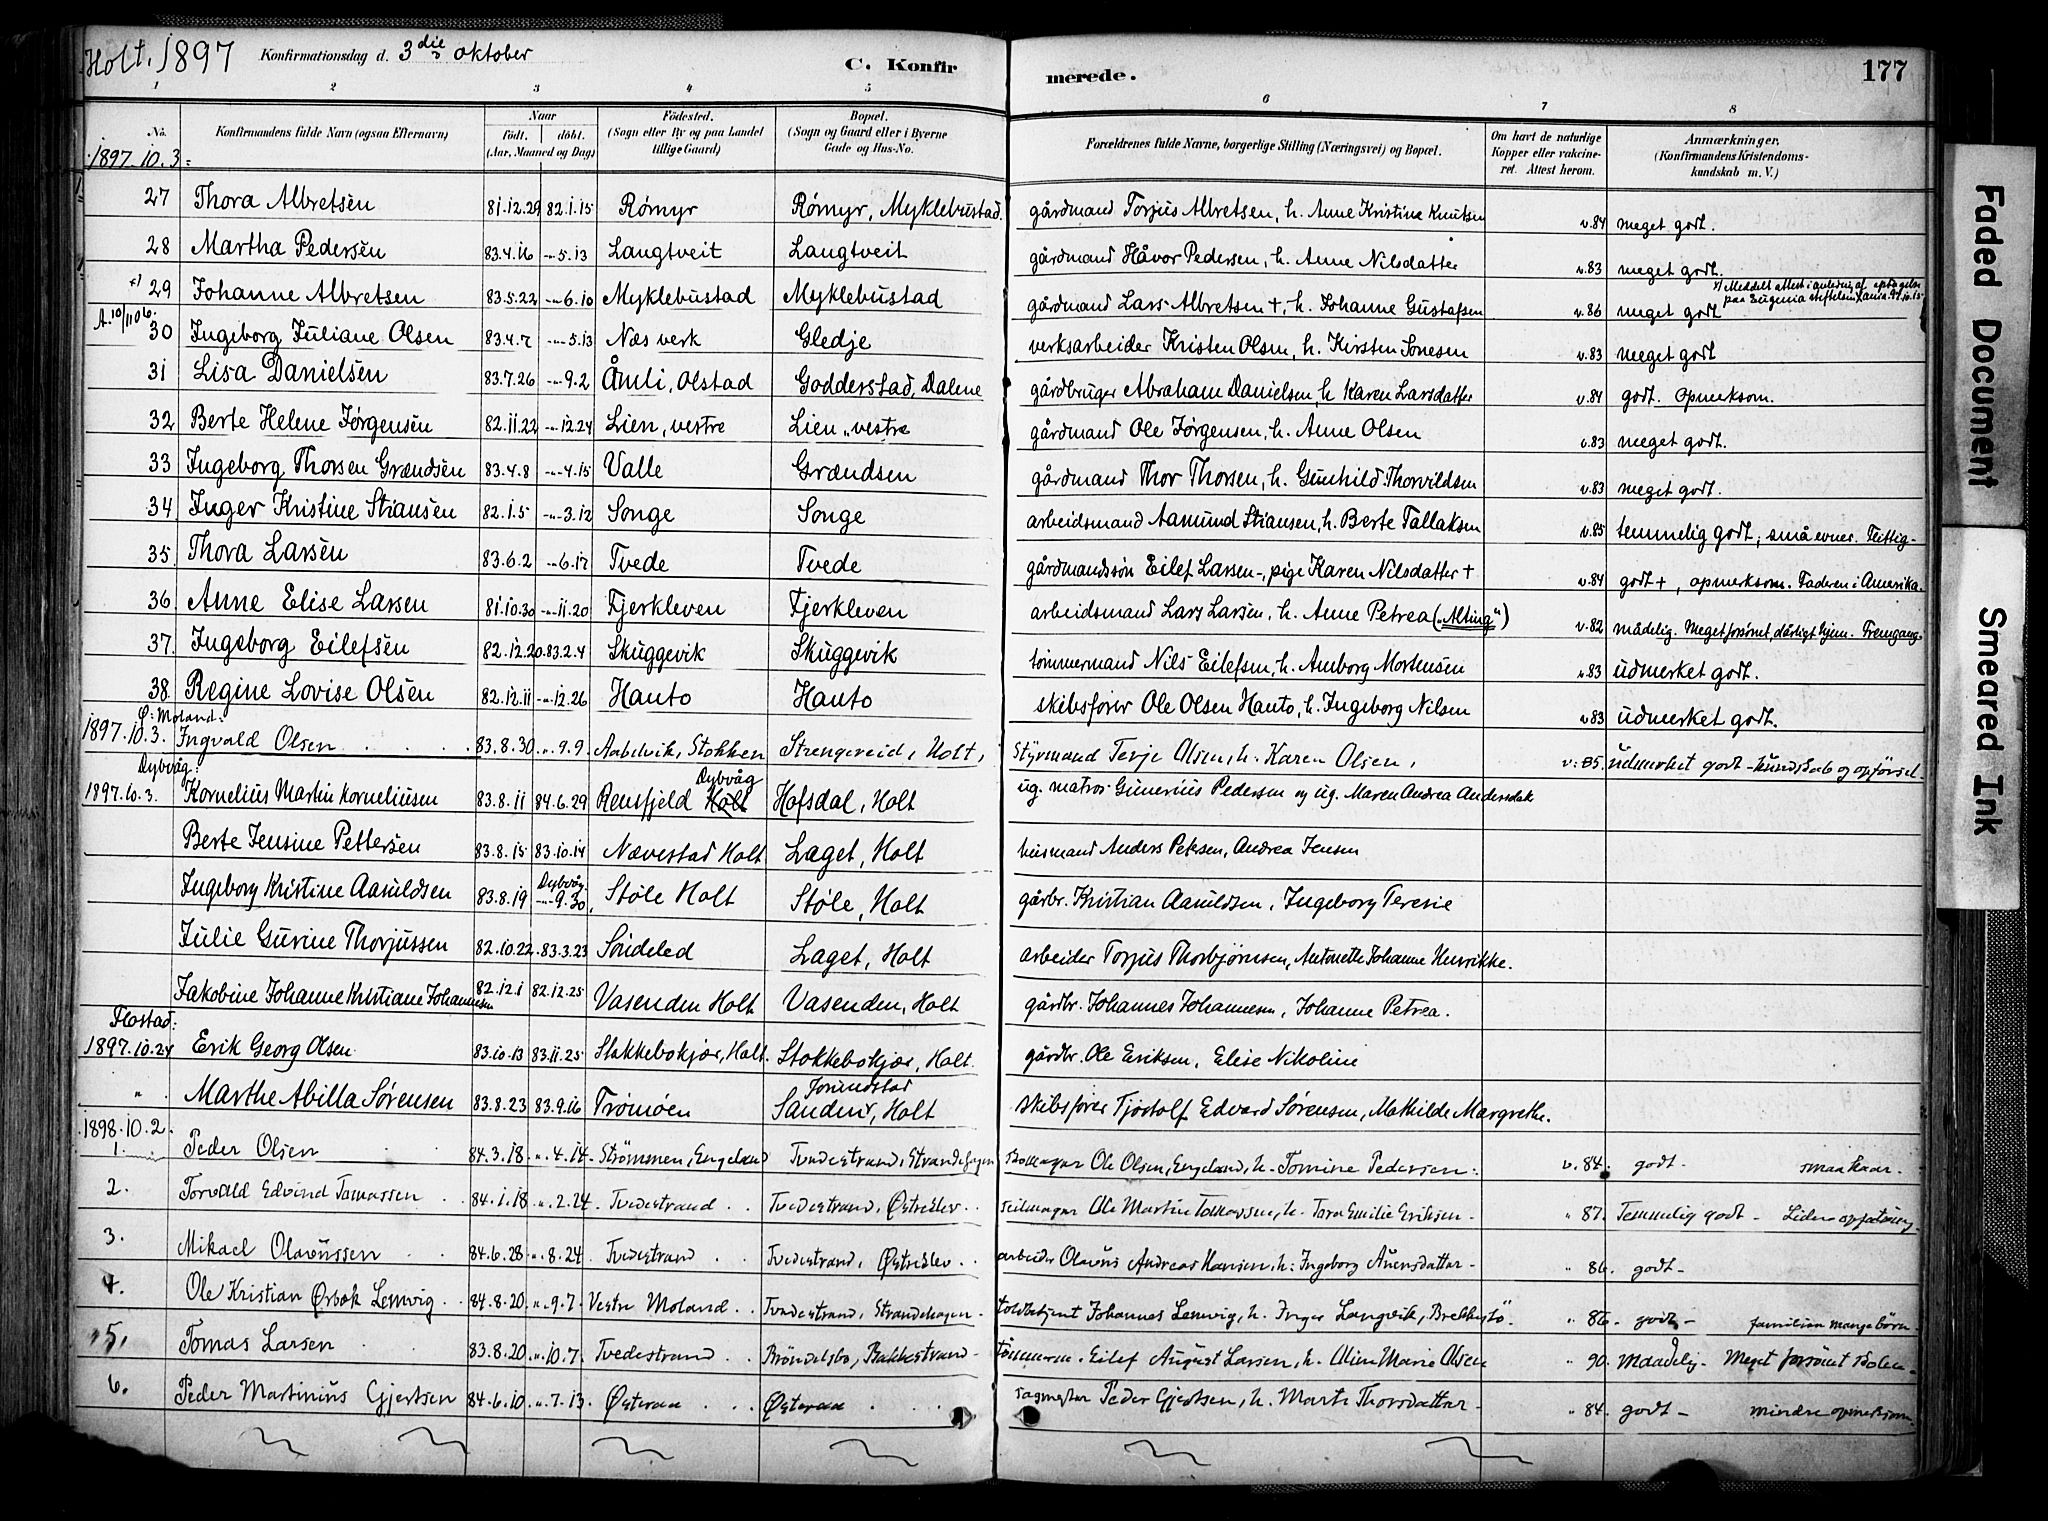 Holt. 1897 Konfirmationsdag d. 3die oktober C. Konfirmerede. 177
1 2 3 4 5 6 7 8
No. Konfirmandens fulde Navn (ogsaa Efternavn) Naar født. døbt. (Aar, Maaned og Dag) Fødested. (Sogn eller By og paa Landet tillige Gaard) Bopæl. (Sogn og Gaard eller i Byerne Gade og Hus-No. Forældrenes fulde Navne, borgerlige Stilling (Næringsvei) og Bopæl. Om havt de naturlige Kopper eller vakcineret. Attest herom. Anmærkninger. (Konfirmandens Kristendomskundskab m. V.)
1897.10.3.
27 Thora Albretsen 81.12.29 82.1.15 Rómyr Rómyr, Myklebustad. gårdmand Torjus Albretsen, h. Anne Kristina Knutsen v.84 meget godt.
28 Martha Pedersen 83.4.16 -"-5.13 Langtveit Langtveit gårdmand Håvor Pedersen, h. Anne Nilsdatter v.83 meget godt.
x) 29 Johanne Albretsen 83.5.22 -"-6.10 Myklebustad Myklebustad gårdmand Lars Albretsen +, h. Johanne Gustafsen v.86 meget godt x) Meddelt attest i anledning af optagelse paa Eugenia stiftelse
A.10/11 06. 30 Ingeborg Juliane Olsen 83.4.7 -"-5.13 Næs verk Gledje verksarbeider Kristen Olsen, h. Kirsten Sonesen v.83 meget godt
31 Lisa Danielsen 83.7.26 -"-9.2 Åmli, Olstad Godderstad, Dalene gårdbruger Abraham Danielsen, h Karen Larsdatter v.84 godt. opmerksom.
32 Berte Helene Jørgensen 82.11.22 -"-12.24 Lien, vestre Lien, vestre gårdmand Ole Jørgensen, h. Anne Olsen v.83 meget godt.
33 Ingeborg Thorsen Grændsen 83.4.8 -"-4.15 Valle Grændsen gårdmand Thor Thorsen, h. Gunhild Thorvildsen v.83 meget godt.
34. Inger Kristine Stiansen 82.1.5 -"-3.12 Songe Songe arbeidsmand Aamund Stiansen, h. Berte Tallaksen v.85 temmelig godt; små evner. Flittig-
35. Thora Larsen 83.6.2 -"-6.17 Tvede Tvede gårdmandssön Eilef Larsen-, pige Karen Nilsdatter + v.84 godt +, opmerksom. Faderen i Amerika.
36 Anne Elise Larsen 81.10.30 -"-11.20 Fjerkleven Fjerkleven arbeidsmand Lars Larsen, h. Anne Petrea („Alting") v.82 mådelig. Meget forsömt, dårligt hjem. Fremgang-
37. Ingeborg Eilefsen 82.12.20. 83.2.4 Skuggevik Skuggevik tömmermand Nils Eilefsen, h. Amborg Mortensen v.83 udmerket godt.
38. Regine Lovise Olsen 82.12.11 -"-12.26 Hanto Hanto skibsförer Ole Olsen Hanto, h. Ingeborg Nilsen v83 udmerket godt.
Ø: Moland:
1897.10.3. Ingvald Olsen . . . . 83.8.30 ."..9.9. Aabelvik, Stokken Strengereid, Holt, Styrmand Terje Olsen, h. Karen Olsen, v:85. udmerket godt - kundskab og opförsel-
Dybvåg:
1897.10.3. Kornelius Martin Korneliusen 83.8.11 84.6.29 Rensfjeld Holt Dybvåg Hofsdal, Holt ug. matros Gunerius Pedersen og ug. Maren Andrea Andersdat
Berte Jensine Pettersen 83.8.15 83.10.14 Nævestad Holt Laget, Holt husmand Anders Petersen, Andrea Jensen
Ingeborg Kristine Aanuldsen 83.8.19 Dybvåg -"-9.30 Støle Holt Støle, Holt gårbr. Kristian Aanuldsen, Ingeborg Teresie
Julie Gurine Thorjussen 82.10.22 83.3.23 Söndeled Laget, Holt arbeider Torjus Thorbjörnsen, Antonette Johanne Henrikke.
Jakobine Johanne Kristiane Johannesen 82.12.1 82.12.25 Vasenden Holt Vasenden, Holt gårdbr. Johannes Johannesen, Johanne Petrea.
Flostad:
1897.10.24 Erik Georg Olsen 83.10.13 83.11.25 Stokkebokjær, Holt. Stokkebokjær, Holt. gårdbr. Ole Eriksen, Elise Nikoline
" . Marthe Abilla Sørensen 83.8.23 83.9.16 Tromöen Sandnes, Holt skibsfører Tjöstolf Edvard Sørensen, Mathilde Margrethe.
1898.10.2.
1. Peder Olsen 84.3.18. ".4.14. Strömmen, Engeland Tvedestrand, Strandehagen Ole Olsen, Engeland, h. Tomine Pedersen: v.84. godt- smaa kaar.
2. Torvald Edvind Tomassen 84.1.18 ".2.24. Tvedestrand Tvedestrand, Østreklev. Seilmager Ole Martin Tomassen, h. Tora Emilie Eriksen- "87. Temmelig godt -
3. Mikael Olavussen 84.6.28 ".8.24. Tvedestrand Tvedestrand, Østreklev. arbeider Olavus Andreas Hansen, h: Ingeborg Auensdatter- "86. godt-
4. Ole Kristian Ørbæk Lemvig 84.8.20 ".9.7. Vestre Moland Tvedestrand, Strandehagen- toldbetjent Johannes Lemvig, h. Inger Langvik, Brekkestö "86. godt- familien mange börn-
5. Tomas Larsen 83.8.20 ".10.7. Tvedestrand Bröndelsbo, Bakkestrand- tömmerm. Eilef August Larsen, h. Oline Marie Olsen "90. Maadelig- Meget forsömt skolen-
6. Peder Martinius Gjertsen 84.6.10 ".7.13 Østeraa Østeraa sagmester Peder Gjertsen, h. Marte Thorsdatter- "84. godt- mindre opmerksom-
Faded Document
Smeared Ink